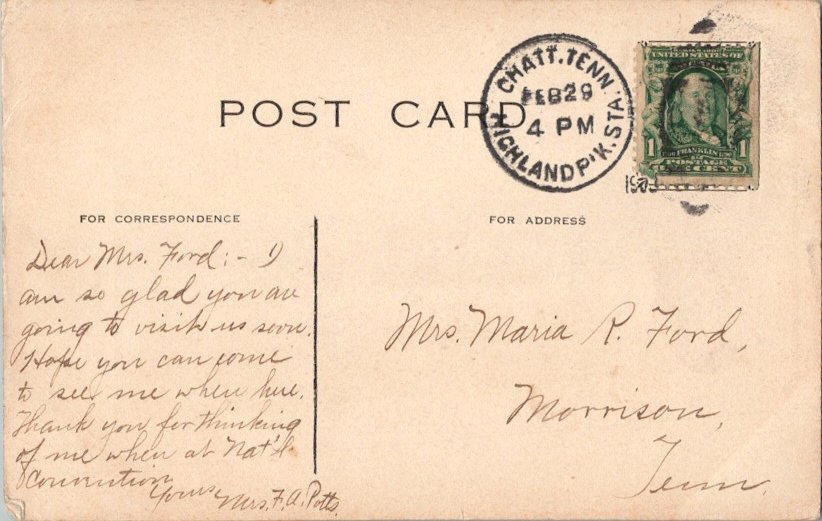 POST CARD
CHATT. TENN.
FEB 29
4 PM
HIGHLAND P'K. STA.
UNITED STATES OF
FRANKLIN
1 1
POSTAGE
ONE CENT
FOR CORRESPONDENCE
FOR ADDRESS
Dear Mrs. Ford:- I
am so glad you are
going to visit us soon.
Hope you can come
to see me when here.
Thank you for thinking
of me when at Nat'l
Convention
Yours Mrs. F. A. Potts.
Mrs. Maria R. Ford,
Morrison,
Tenn.